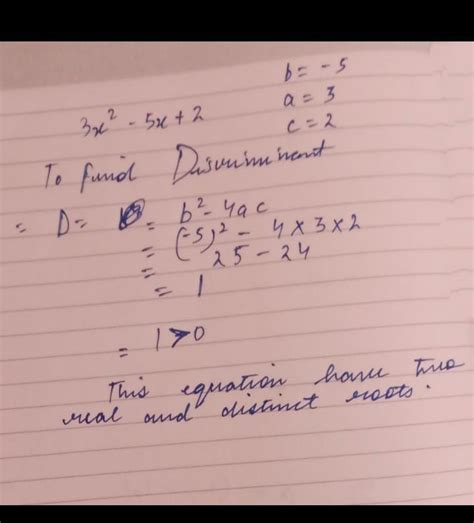 b = -5
a = 3
3x² - 5x + 2
c = 2
To find Discriminent
= D = = b² - 4ac
= (-5)² - 4 × 3 × 2
= 25 - 24
= 1
= 1 > 0
This equation have two
real and distinct roots.